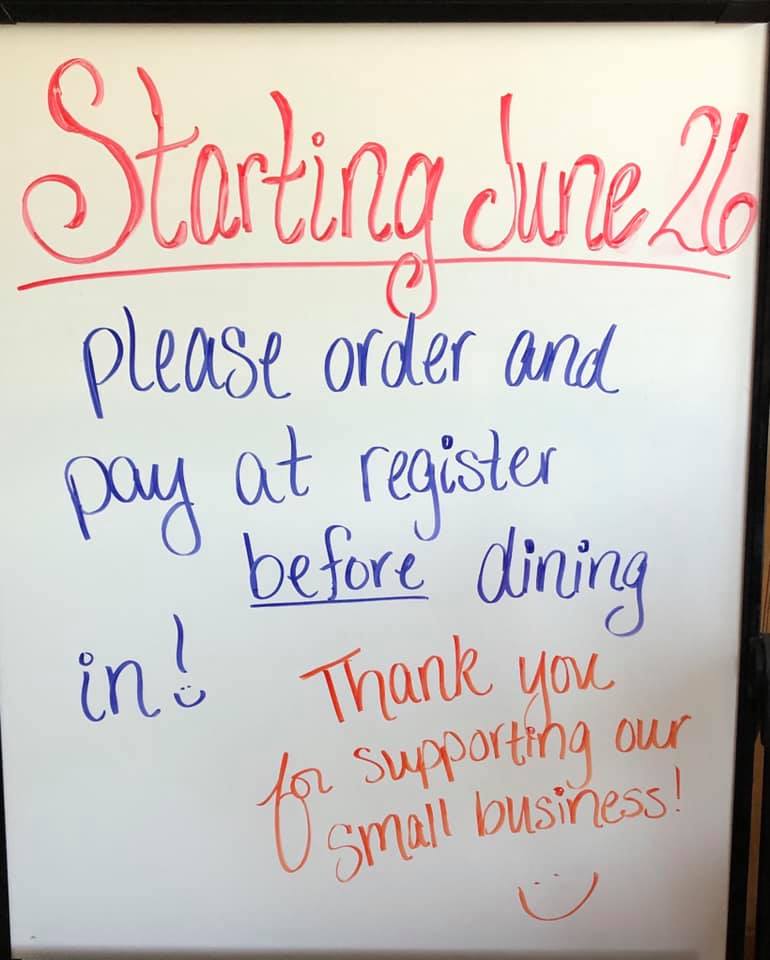 Starting June 26
please order and
pay at register
before dining
in!
Thank you
for supporting our
small business!